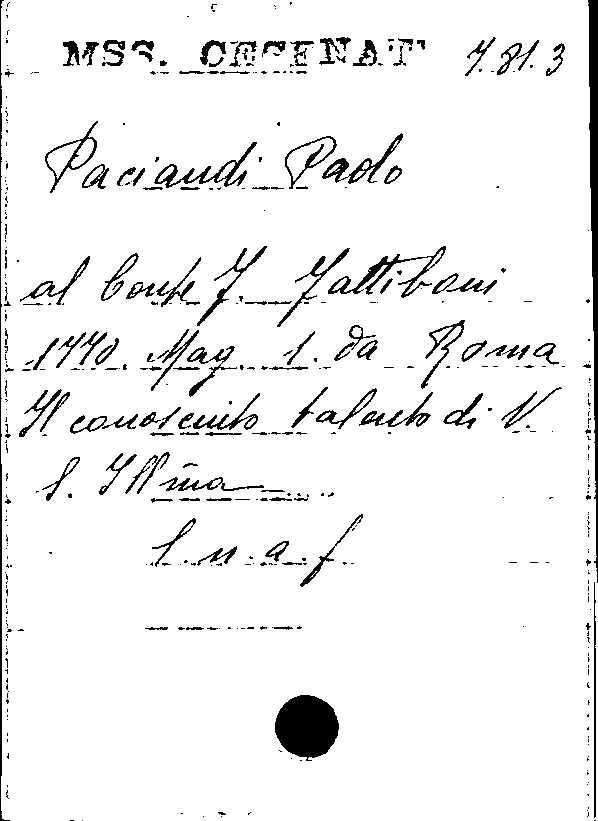 MSS. CESENATI 7.81.3
Paciaudi Paolo
al Conte J. Fattiboni
1770. Mag. 1. da Roma
Il conosciuto talento di V.
S. Illm̃a
S. n. a. f.